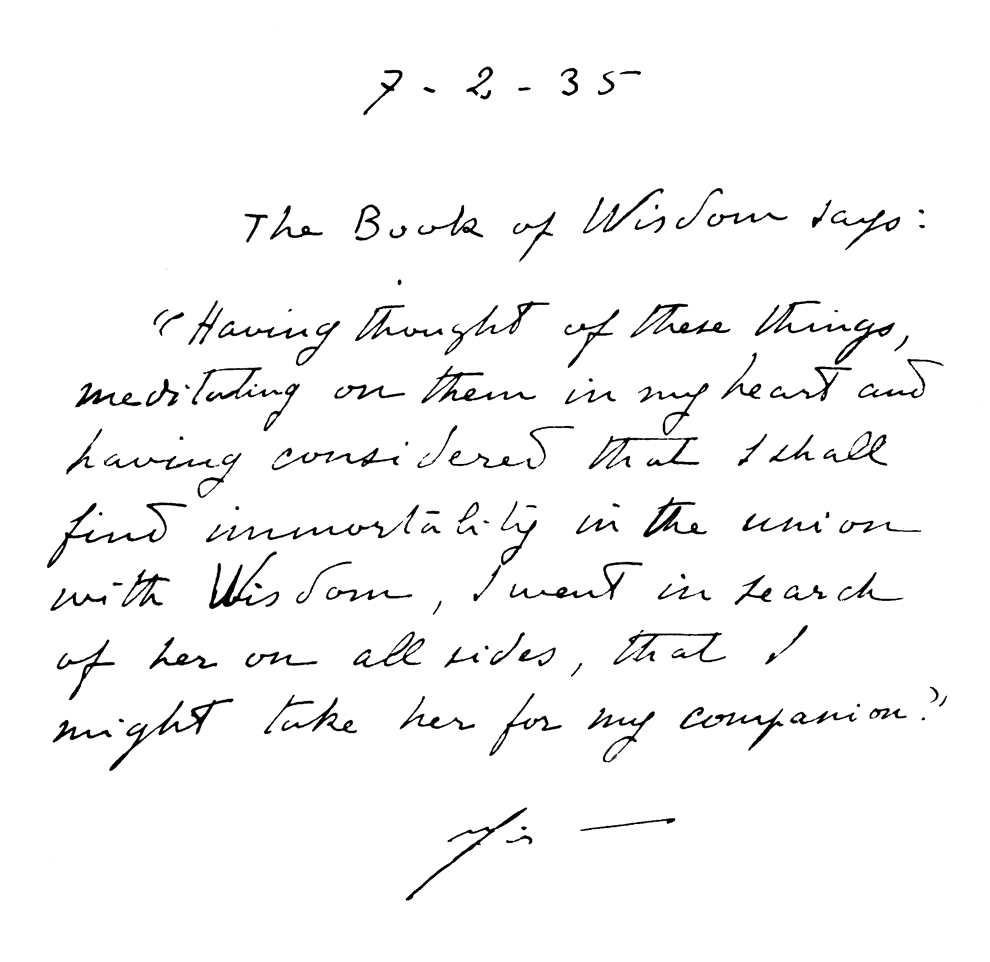 7 - 2 - 35
The Book of Wisdom says:
“Having thought of these things,
meditating on them in my heart and
having considered that I shall
find immortality in the union
with Wisdom, I went in search
of her on all sides, that I
might take her for my companion.”